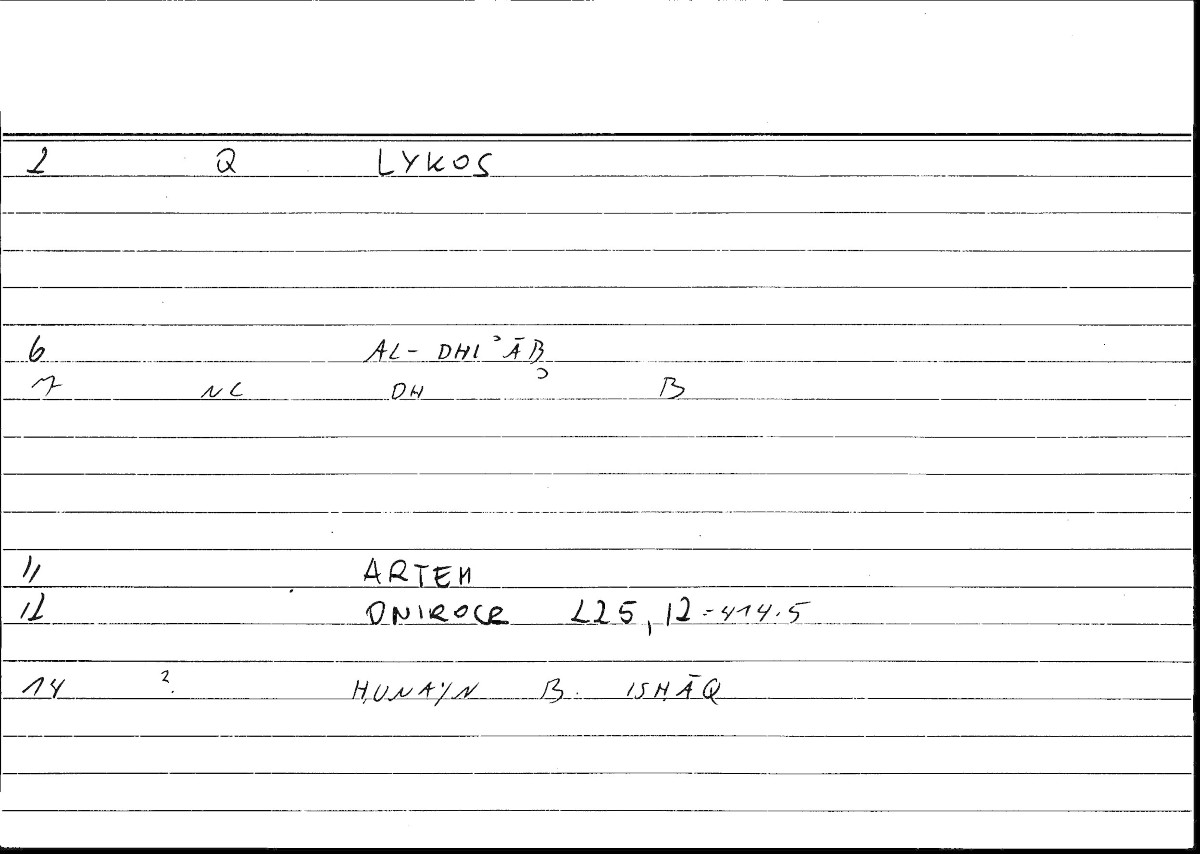 1 Q LYKOS
6 AL-DHIʾĀB
7 NC DH ʾ B
11 ARTEM
12 ONIROCR 225,12-414.5
14 ? ḤUNAYN B. ISḤĀQ